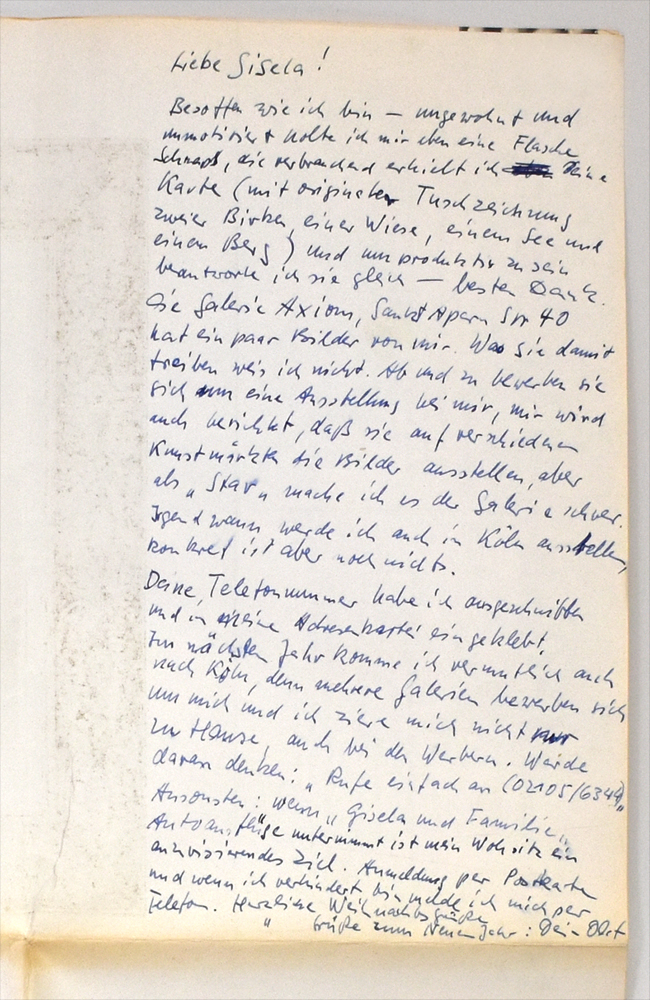 Liebe Gisela!
Besoffen wie ich bin — ungewohnt und
unmotiviert holte ich mir eben eine Flasche
Schnaps, die verbrauchend erhielt ich Deine
Karte (mit originaler Tuschzeichnung
zweier Birken, einer Wiese, einem See und
einem Berg) und um produktiv zu sein
beantworte ich sie gleich — besten Dank.
Die Galerie Axiom, Sankt Apern Str 40
hat ein paar Bilder von mir. Was sie damit
treiben weis ich nicht. Ab und zu bewerben sie
sich um eine Ausstellung bei mir, mir wird
auch berichtet, daß sie auf verschiedenen
Kunstmärkten die Bilder ausstellen, aber
als „Star„ mache ich es der Galerie schwer.
Irgendwann werde ich auch in Köln ausstellen,
konkret ist aber noch nichts.
Deine Telefonnummer habe ich ausgeschnitten
und in meine Adressenkartei eingeklebt,
Im nächsten Jahr komme ich vermutlich auch
nach Köln, denn mehrere Galerien bewerben sich
um mich und ich ziere mich nicht nur
zu Hause, auch bei den Werbern. Würde
daran denken: „Rufe einfach an (02105/6344)„
Ansonsten: wenn „Gisela und Familie„
Autoausflüge unternimmt ist mein Wohnsitz ein
anzuvisierendes Ziel. Anmeldung per Postkarte
und wenn ich verhindert bin melde ich mich per
Telefon. Herzliche Weihnachtsgrüße
" Grüße zum Neuen Jahr: Dein